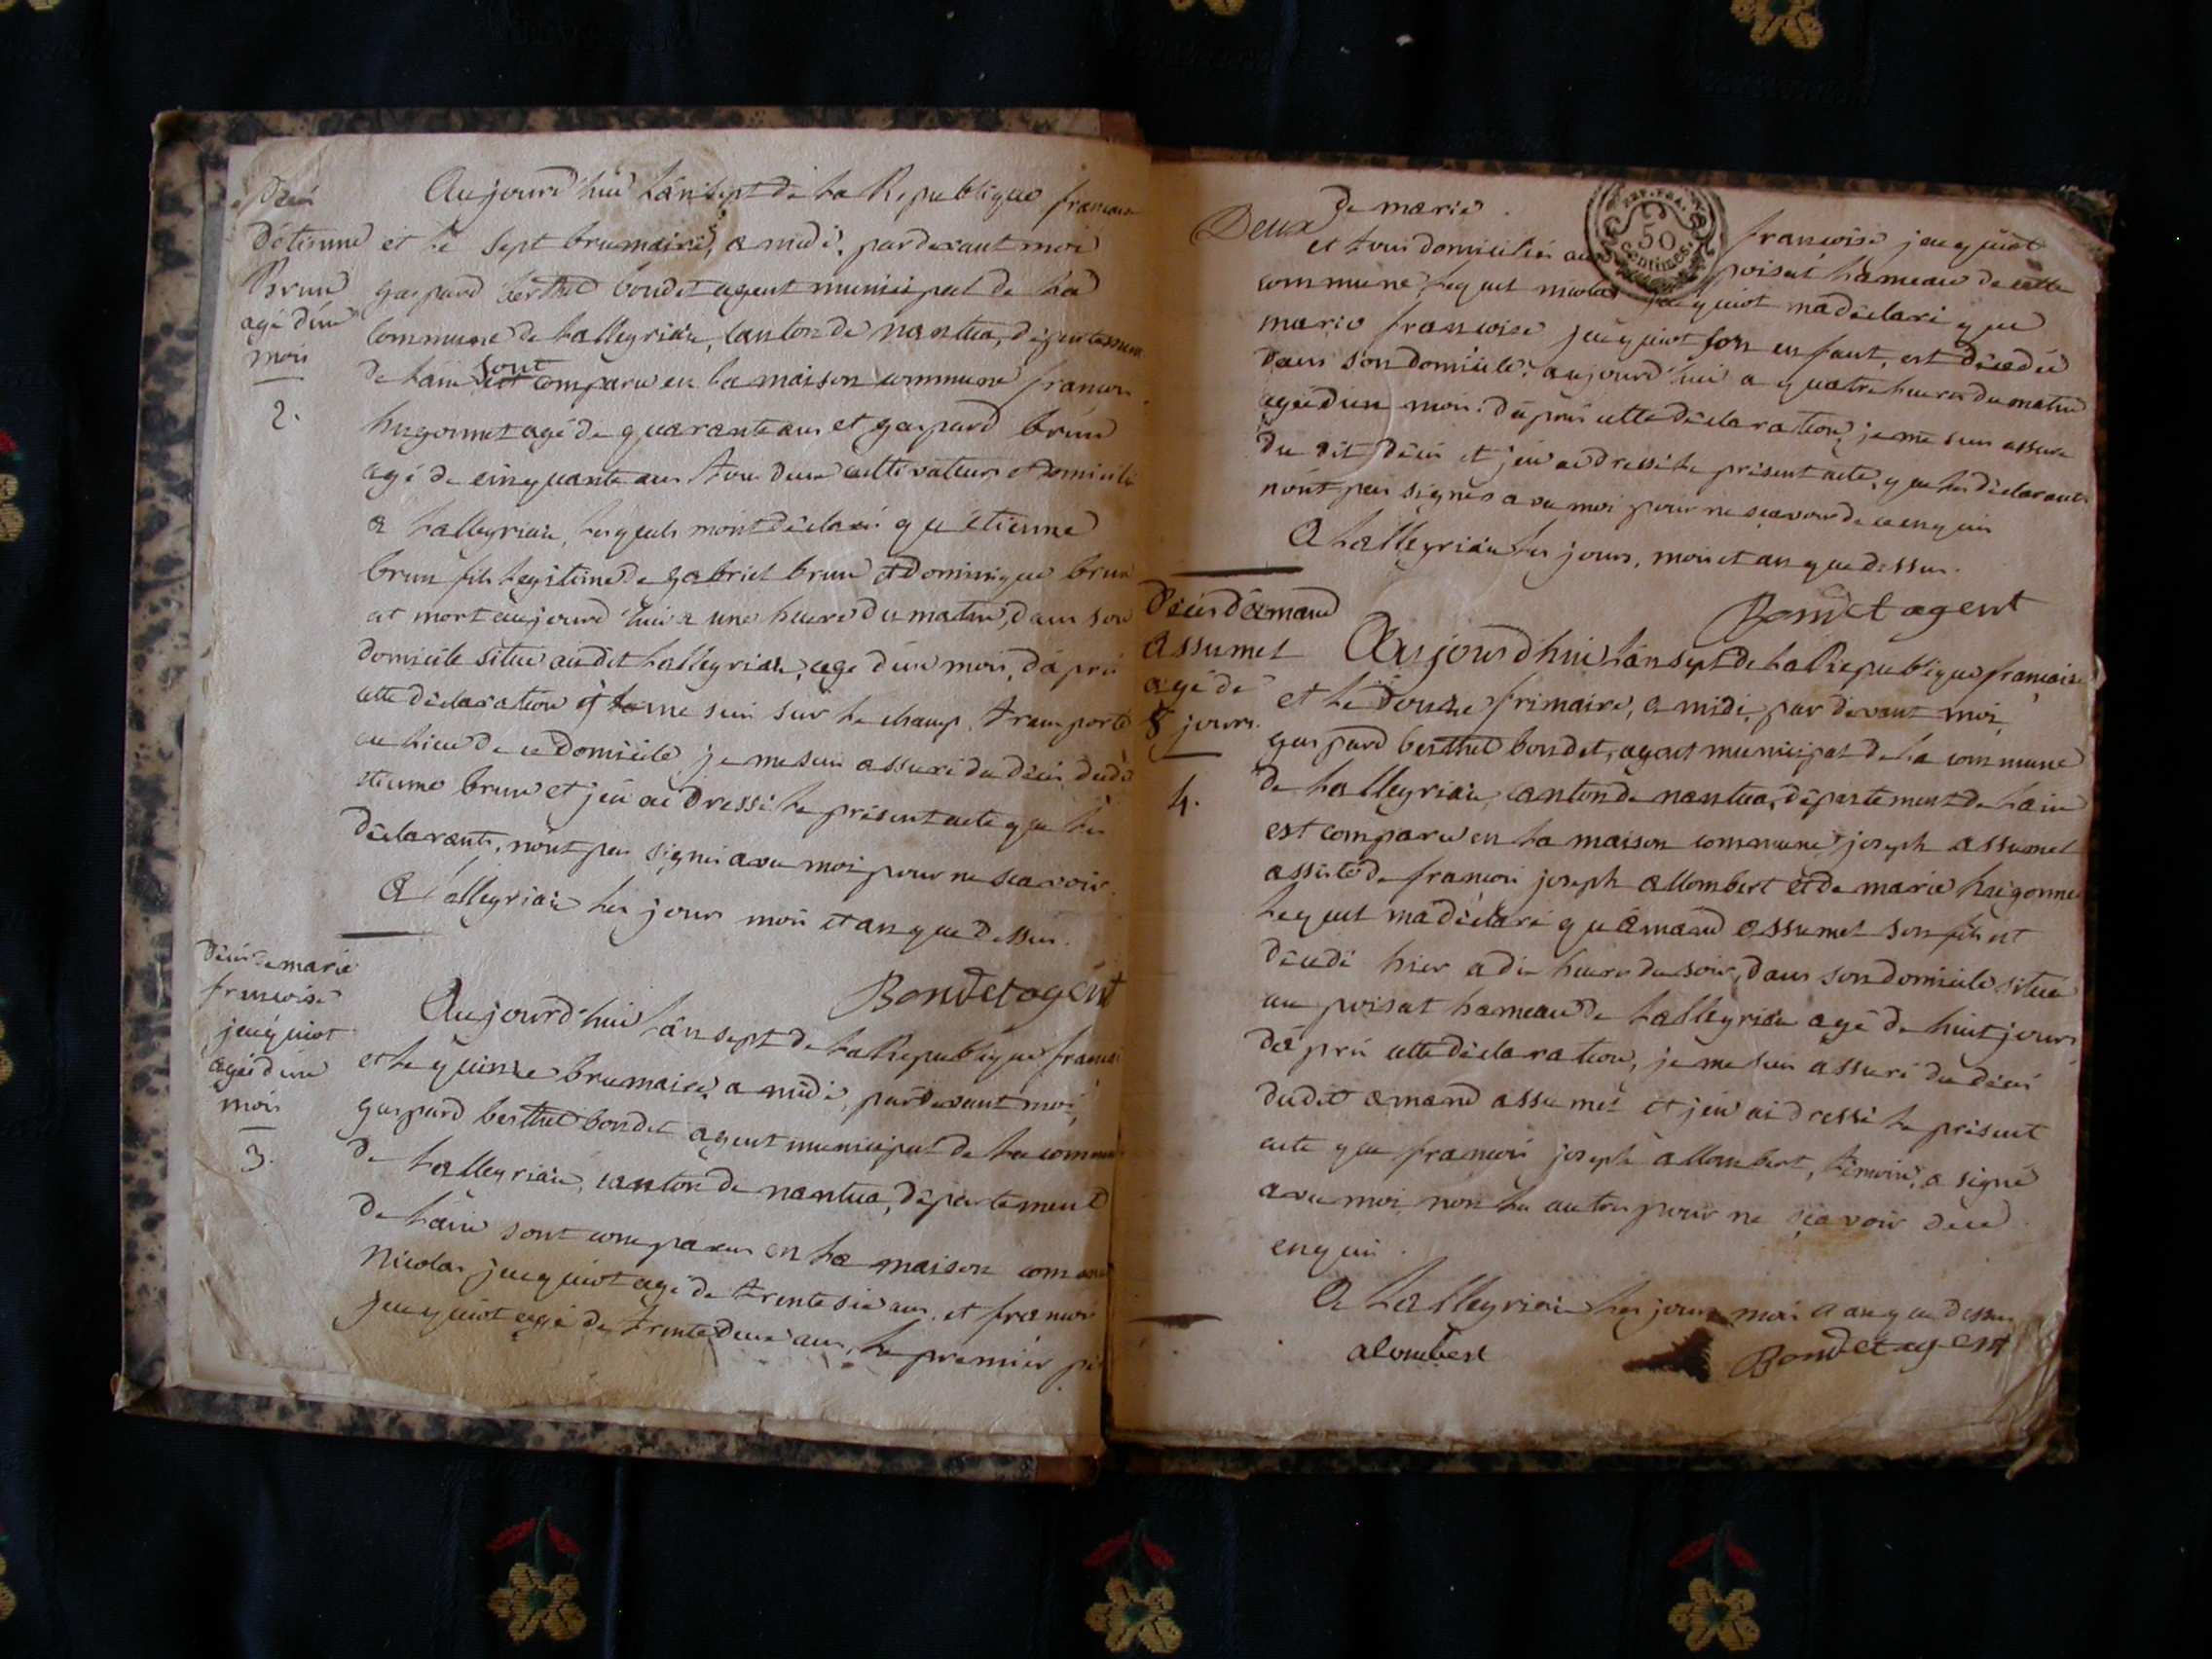 Décés
d'étienne
Brun
agé d'un
mois
2.
Aujourd'hui l'an sept de la Republique francaise
et le sept brumaire, a midi, pardevant moi
gaspard berthet bondet agent municipal de la
commune de Lalleyriat, canton de nantua, département
de l'ain sont comparu en la maison commune francois
hugonnet agé de quarante ans et gaspard brun
agé de cinquante ans tous deux cultivateurs et domicilié
a Lalleyriat, lesquels m'ont déclaré que étienne
brun fils legitime de gabriel brun et dominique brun
at mort aujourd'hui a une heure du matin, dans son
domicile situé audit Lalleyriat, agé d'un mois, d'aprés
cette déclaration je me suis sur le champ transporté
au lieu de ce domicile, je me suis assuré du décés dudi
étienne brun et j'en ai dressé le présent acte que les
déclarants, n'ont pas signés avec moi pour ne scavoir.
A Lalleyriat les jours mois et an que dessus.
Bondet agent
décés de marie
francoise
jacquiot
agée d'un
mois
3.
Aujourd'hui l'an sept de la Republique francai
et le quinze brumaire, a midi, pardevant moi
gaspard berthet bondet agent municipal de la commun
de Lalleyriat, canton de nantua, département
de l'ain sont comparus en la maison commune
Nicolas jacquiot agé de trente six ans, et francois
jacquiot agé de trente deux ans, le premier pé
de marie francoise jacquiot
Deux
50
Centimes.
et tous domiciliés au poisat hameau de cette
commune, lequel nicolas jacquiot m'a déclaré que
marie francoise jacquiot son enfant, est décédée
dans son domicile, aujourd'hui a quatre heures du matin
agée d'un mois. d'aprés cette déclaration, je me suis assuré
du dit décés et j'en ai dressé le présent acte, que les déclarants
n'ont pas signés avec moi pour ne scavoir de ce enquis
A Lalleyriat les jours, mois et an que dessus.
Bondet agent
Décés d'amand
assumet
agé de
8 jours.
4.
Aujourd'hui l'an sept de la Republique francaise
et le douze frimaire, a midi, par devant moi,
gaspard berthet bondet, agent municipal de la commune
de Lalleyriat, canton de nantua, département de l'ain
est comparu en la maison commune joseph assumet
assisté de francois joseph allombert et de marie hugonnet
lequel m'a déclaré qu'amand assumet son fils est
décédé hier a dix heures du soir, dans son domicile situé
au poisat hameau de Lalleyriat agé de huit jours
d'aprés cette déclaration, je me suis assuré du décés
dudit amand assumet et j'en ai dressé le présent
acte que francois joseph allombert, témoin, a signé
avec moi, non les autres pour ne scavoir de ce
enquis.
A Lalleyriat les jours mois et an que dessus
alombert
Bondet agent